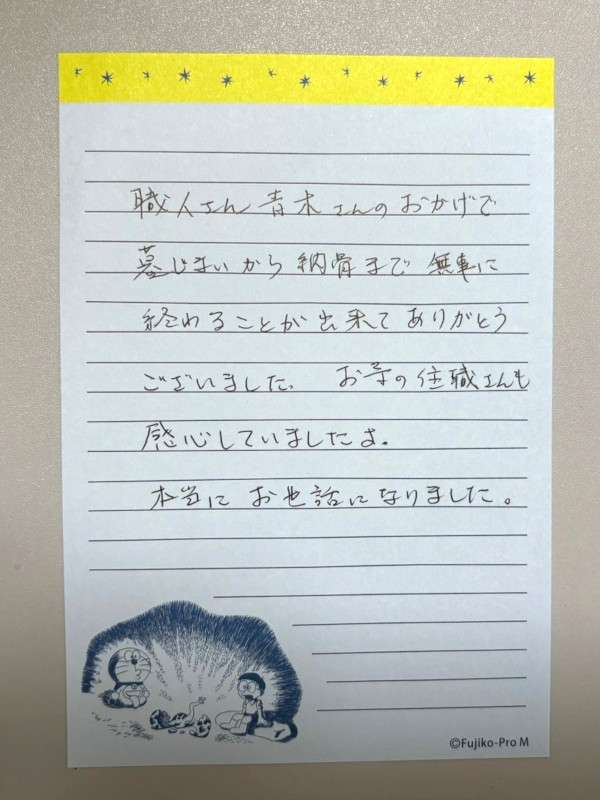 職人さん 青木さんのおかげで
墓じまいから納骨まで 無事に
終わることが出来てありがとう
ございました. お寺の住職さんも
感心していましたよ.
本当に お世話になりました。
©Fujiko-Pro M